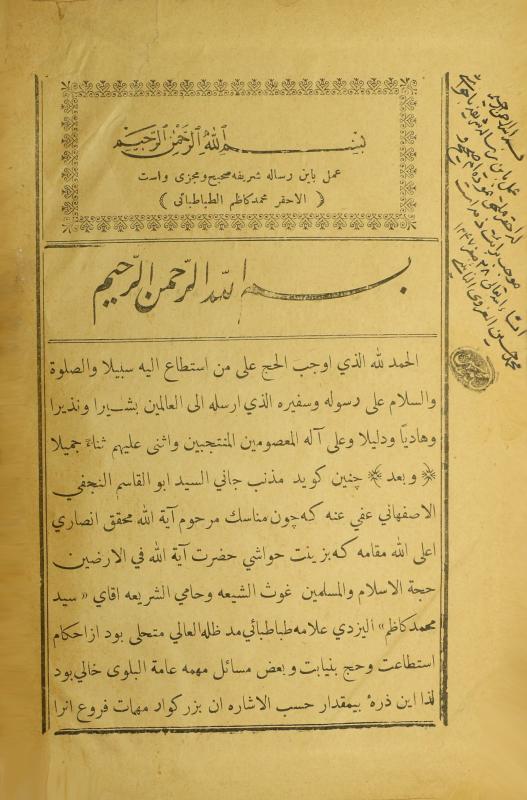 بسم الله الرحمن الرحیم
عمل باین رساله شریفه صحیح و مجزی و است
( الاحقر محمد کاظم الطباطبائی )
بسم الله الرحمن الرحیم
الحمد لله الذي اوجب الحج على من استطاع اليه سبيلا والصلوة
والسلام على رسوله وسفيره الذي ارسله الى العالمين بشيرا ونذيرا
وهاديًا ودليلا وعلى آله المعصومين المنتجبين واثنى عليهم ثناءً جميلا
٭ وبعد ٭ چنین کوید مذنب جاني السيد ابو القاسم النجفي
الاصفهاني عفي عنه که چون مناسك مرحوم آية الله محقق انصاري
اعلى الله مقامه که بزینت حواشي حضرت آية الله في الارضين
حجة الاسلام والمسلمين غوث الشيعه وحامي الشريعه اقاي « سيد
محمد کاظم» اليزدي علامه طباطبائي مد ظله العالي متحلی بود از احکام
استطاعت وحج بنیابت و بعض مسائل مهمه عامة البلوی خالي بود
لذا این ذرهٔ بیمقدار حسب الاشاره ان بزرکوار مهمات فروع انرا
بسم الله الرحمن الرحیم
عمل باین رساله شریفه
موجب برائت ذمه است
انشاء الله تعالی ۲۸ صفر ۱۳۴۷
محمد حسین الغروی النائینی